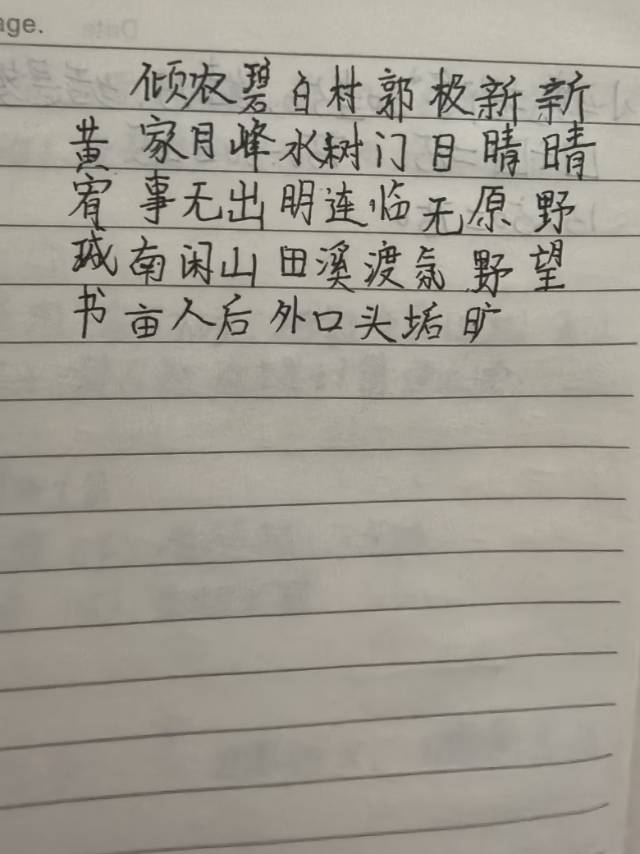 age.
新晴野望
新晴原野旷
极目无氛垢
郭门临渡头
村树连溪口
白水明田外
碧峰出山后
农月无闲人
倾家事南亩
黄宥珹书